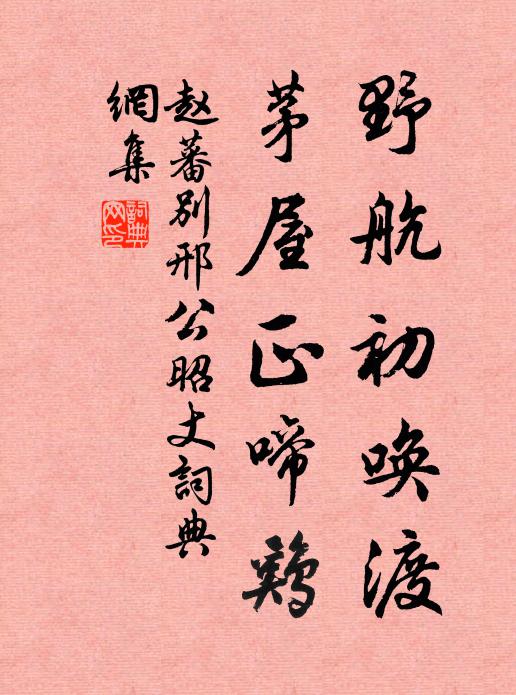 野航初唤渡
茅屋正啼鷄
赵蕃别邢公昭丈詞典
網集
詞典網印